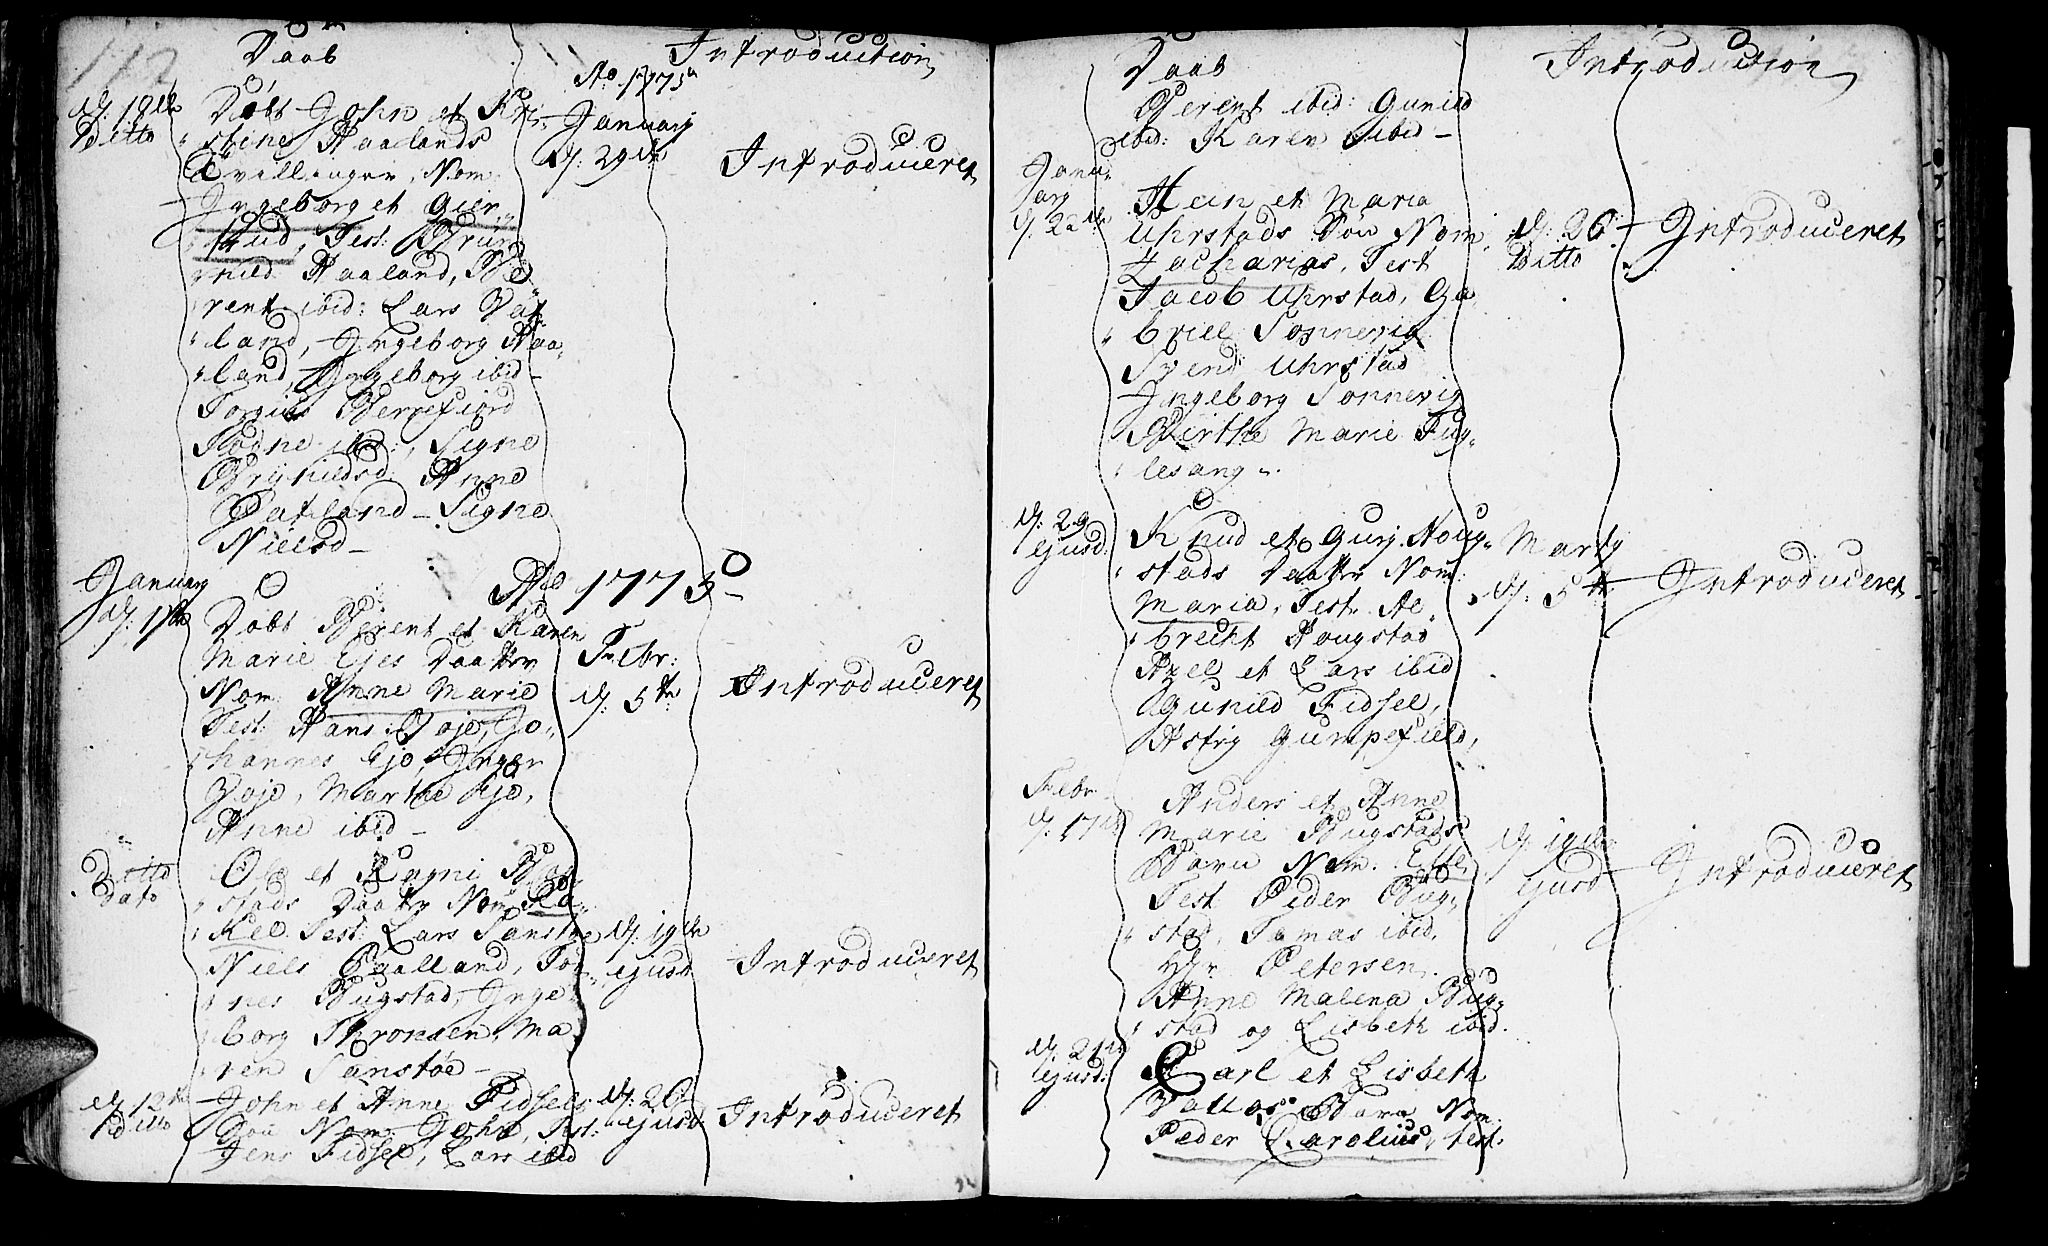 112
Daab
Introduction
Ao 1775
d. 18de
Ditto
Døbt John et Kri-
stines Haalands
Tvillinger, Nom
Ingeborg et Gier-
trud, Test: Brün-
nild Haaland, Be-
rent ibid: Lars Vat-
land, Ingeborg Haa-
land, Ingeborg ibid
Torgius Berrefiord
Todne ibid:, Signe
Brynildsd: Anne
Vatland - Signe
Nielsd -
January
d: 29de
Introduceret
Ao 1775
January
d: 1ste
Døbt Berent et Karen
Marie Ejes Daatter
Nom Anne Marie
Test Hans Voje, Jo-
hannes Eje, Inger
Voje, Marthe Eje,
Anne ibid -
Febr:
d: 5te
Introduceret
Ditto
Dato
Ole et Ragni
stads Daatter Nom Ra-
kel Test: Lars Sanstøe
Niels Aalland, Tor-
nes Bugstad, Inge-
borg Thronsen, Ma-
ren Sanstøe -
d: 19de
ejusd
Introduceret
d. 12te
Ditto
John et Anne Fidsels
Søn Nom John, Test:
Jens Fidsel, Lars ibid
d: 26
ejusd
Introduceret
Daab
Introduction
Berent ibid: Gunild
ibid: Karen ibid -
Janu-
ary
d. 22de
Hein et Maria
Uhrstads Søn Nom
Zacharias, Test
Jacob Uhrstad, Ga-
briel Sonnevig
Svend Uhrstad
Ingeborg Sonnevig
Birthe Marie Fug-
lesang
d: 26
Ditto
Introduceret
d: 29
ejusd:
Knud et Gurj Houg-
stads Daatter Nom:
Maria, Test Ae-
brecht Hougstad
Axel et Lars ibid
Gunild Fidsel,
Astrj Gumpefield,
Marty
d: 5te
Introduceret
Febr
d. 17de
Anders et Anne
Marie Bugstads
Barn Nom. Else
Test Peder Bug-
stad, Tomas ibid.
Hr Petersen.
Anne Malena Bug-
stad og Lisbeth ibid.
d: 19de
ejusd
Introduceret
d. 21de
ejusd:
Carl et Lisbeth
Barn Nom
Peder Carolius, test: